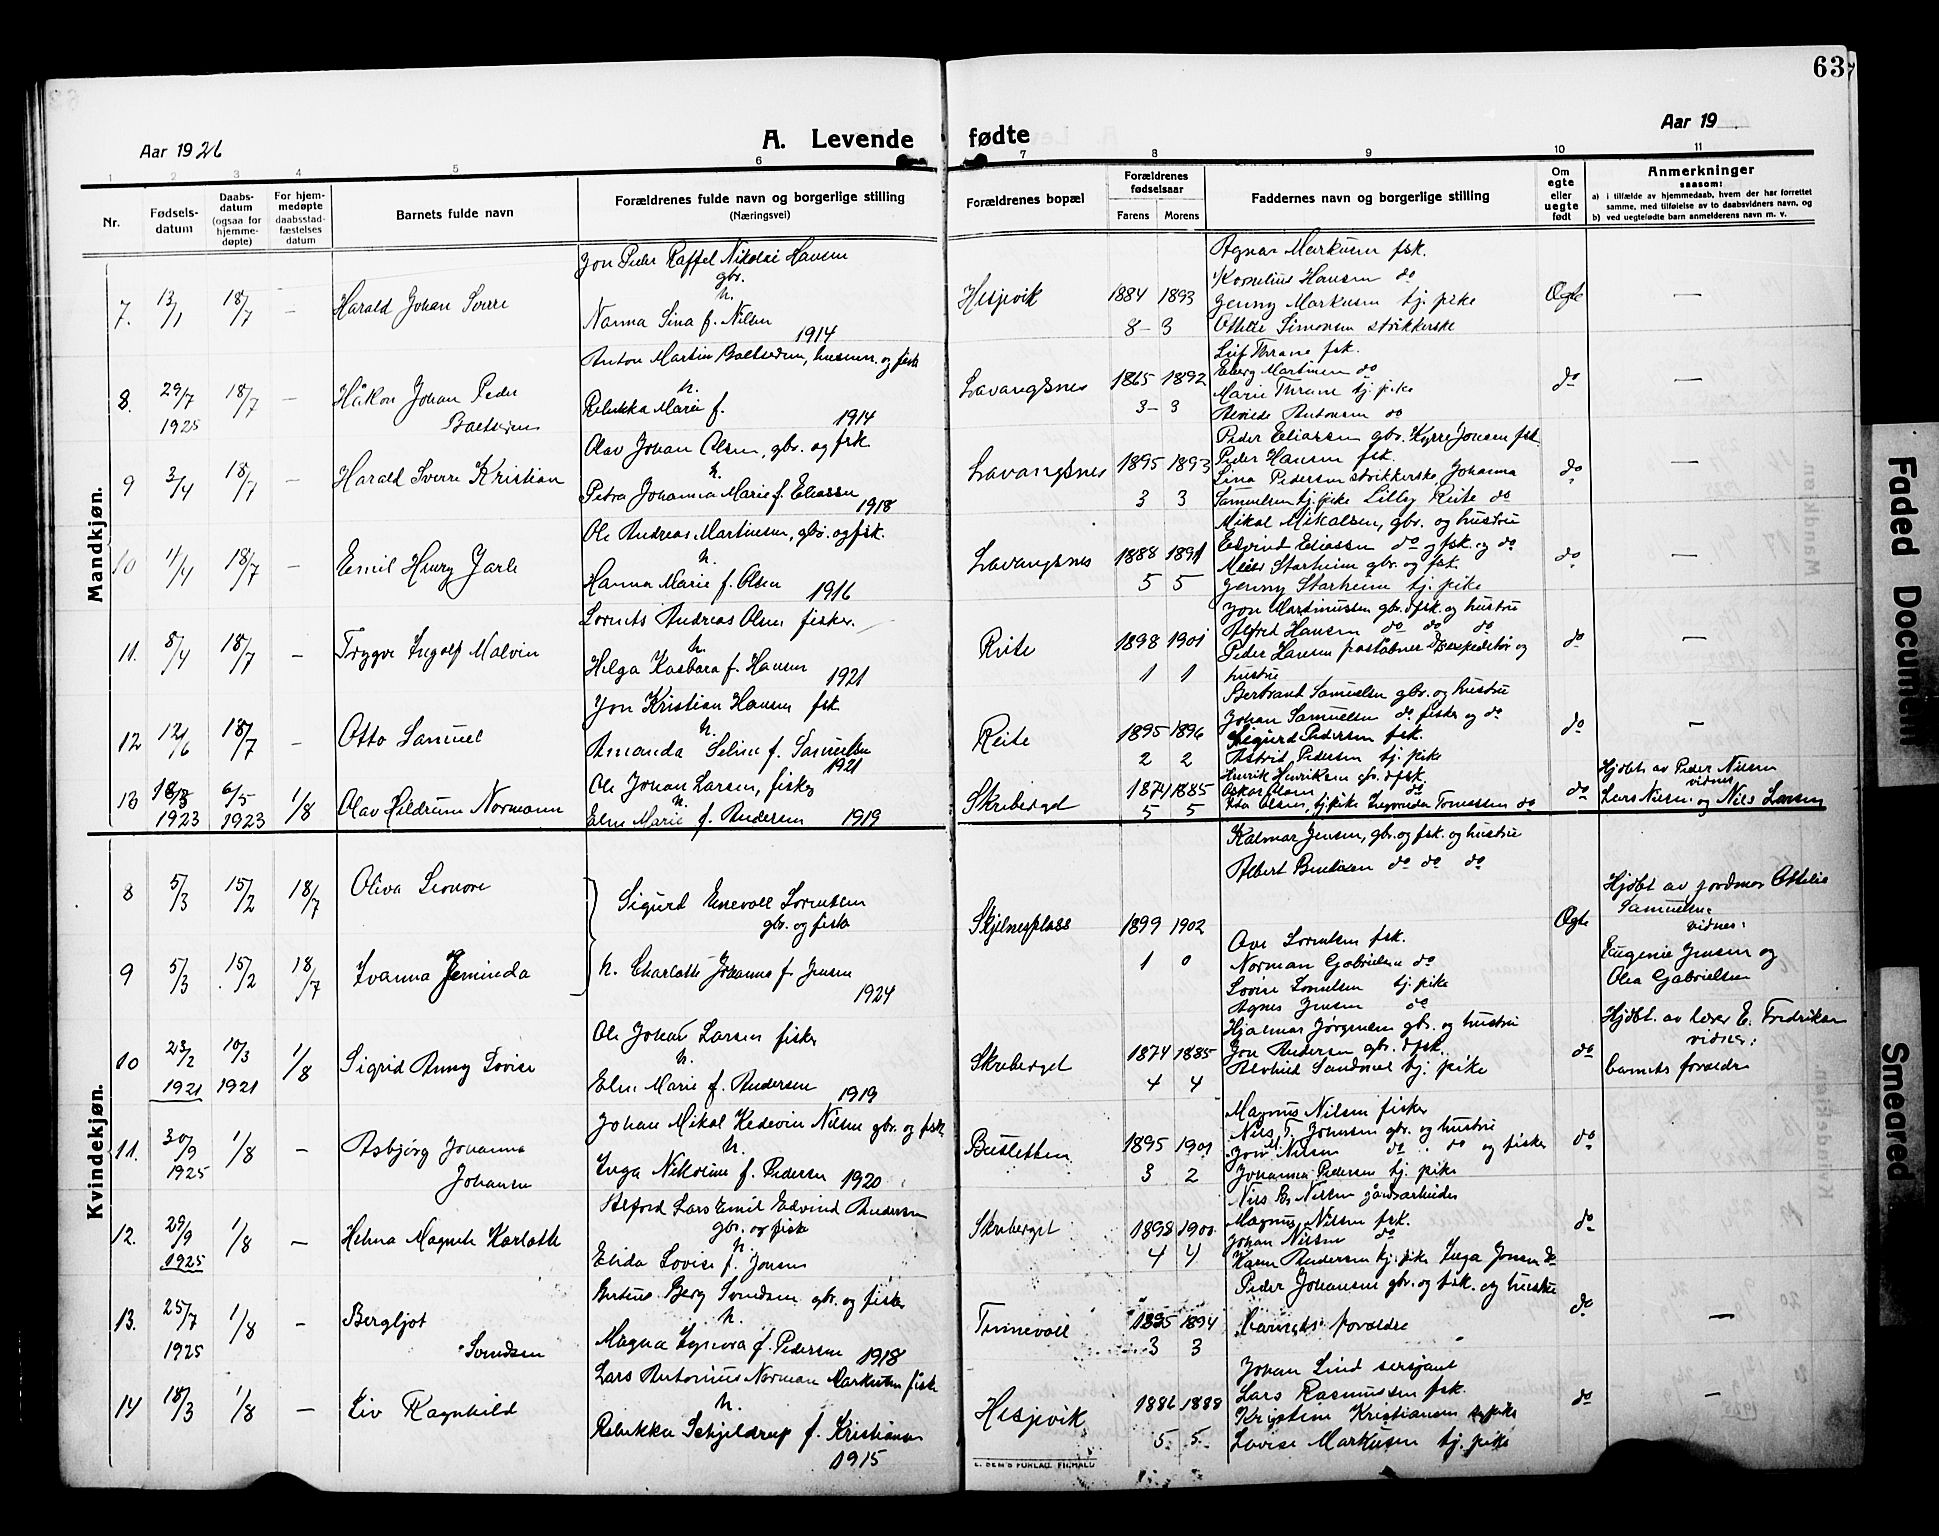 63
Aar 1926
A. Levende fødte
Aar 19
1 2 3 4 5 6 7 8 9 10 11
Nr.
Fødsels-
datum
Daabs-
datum
(ogsaa for
hjemme-
døpte)
For hjem-
medøpte
daabsstad-
fæstelses
datum
Barnets fulde navn
Forældrenes fulde navn og borgerlige stilling
(Næringsvei)
Forældrenes bopæl
Forældrenes
fødselsaar
Farens Morens
Faddernes navn og borgerlige stilling
Om
egte
eller
uegte
født
Anmerkninger
saasom:
a) i tilfælde av hjemmedaab, hvem der har forrettet
samme, med tilføielse av to daabsvidners navn, og
b) ved uegtefødte barn anmelderens navn m. v.
Mandkjøn.
7. 13/1 18/7 —
Harald Johan Sverre
Jon Peder Raffel Nikolai Hansen
gbr.
h.
Nanna Lina f. Nilsen
1914
Hesjevik
1884 1893
8 – 3
Agnar Markusen fsk.
Kornelius Hansen do
Jenny Markusen tj. pike
Ottilie Simonsen strikkerske
Ægte
—
8. 29/7 1925 18/7 —
Håkon Johan Peder
Baltsersen
Anton Martin Baltsersen, husmn. og fisk
h.
Rebekka Marie f.
1914
Lavangsnes
1865 1892
3 – 3
Leif Thrane fsk.
Marie Thrane tj. pike
do
—
9 3/4 18/7 —
Harald Sverre Kristian
Olav Johan Olsen, gbr. og fsk
h.
Petra Johanna Marie f. Eliassen
1918
Lavangsnes
1895 1893
3 3
Peder Eliassen gbr. Kyrre Jonsen fsk
Peder Hansen fsk.
Lina Pedersen strikkerske, Johanna
Samuelsen tj. pike Lilly Reite do
do
—
10 4/4 18/7 —
Emil Henry Jarle
Ole Andreas Martinsen, gbr. og fsk.
h.
Hanna Marie f. Olsen
1916
Lavangsnes
1888 1891
5 5
Mikal Mikalsen, gbr. og hustru
Edvind Eliassen do og fsk. og do
Meier Starheim gbr. og fsk.
Jenny Starheim tj. pike
do
—
11. 8/4 18/7 —
Trygve Ingolf Malvin
Lorents Andreas Olsen fisker.
h.
Helga Kasbara f. Hansen
1921
Reite
1898 1901
1 1
Jon Martinussen gbr. & fsk. og hustru
Alfred Hansen do do do
Peder Hansen poståbner & expeditør og
hustru
do
—
12 12/6 18/7 —
Otto Samuel
Jon Kristian Hansen fsk
h.
Amanda Seline f. Samuelsen
1921
Reite
1895 1896
2 2
Bertrand Samuelsen gbr. og hustru
Johan Samuelsen do fisker og do
Sigurd Pedersen fsk.
Astrid Pedersen tj. pike
do
—
13 18/3 1923 6/5 1923 1/8
Olav Hildrum Normann
Ole Johan Larsen, fisker
h.
Elen Marie f. Andersen 1919
Skreberget
1874 1885
5 5
Henrik Henriksen gbr. & fsk.
Oskar Olsen do
do
Hjdbt. av Peder Nilsen
vidner
Lars Nilsen og Nils Larsen
Kvindekjøn.
8 5/3 15/2 18/7
Oliva Leonore
Sigurd Enevold Lorentsen
gbr. og fisk
9 5/3 15/2 18/7
Ivanna Jeminda
h. Charlotte Johanna f. Jensen
1924
Skjelnesplass
1899 1902
1 0
Kalmar Jensen, gbr. og fsk. og hustru
Albert do do do
Ove Lorentsen fsk.
Norman Gabrielsen do
Lovise Lorentsen tj. pike
Agnes Jensen do
Ægte
Hjdbt av jordmor Ottilie
Samuelsen
vidner:
Eugenie Jensen og
Olea Gabrielsen
10 23/2 1921 10/3 1921 1/8
Sigrid Anny Lovise
Ole Johan Larsen fisker
h.
Elen Marie f. Andersen
1919
Skreberget
1874 1885
4 4
Hjalmar Jørgensen gbr. og hustru
Jon Andersen gbr. & fsk.
Alvhild Sandnes tj. pike
do
Hjdbt. av lærer E. Fredriksen
vidner:
barnets forældre
11. 30/9 1925 1/8 —
Asbjørg Johanna
Johansen
Johan Mikal Kedevin Nilsen gbr. og fisk
h.
Inga Nikoline f. Pedersen 1920
Busletten
1895 1901
3 2
Magnus Nilsen fisker
Nils T. Johnsen gbr. og hustru
Jon M. Nilsen do do og fisker
Johanna Pedersen tj. pike
do
12. 29/9 1925 1/8 —
Helena Magnete Karlotte
Alford Lars Emil Edvind Andersen
gbr. og fisk
h.
Elida Lovise f. Jensen
Skreberget
1898 1900
4 4
Nils B. Nilsen gårdsarbeider
Magnus Nilsen fsk.
Johan Nilsen do
Karen Andersen tj. pike Inga Jensen do
do
13. 25/7 1925 1/8 —
Bergljot
Svendsen
Berteus Berg Svendsen gbr. og fisker
h.
Magna Ingeora f. Pedersen 1918
Tennevoll
1895 1894
3 3
Peder Johansen gbr. og fsk. og hustru
barnets forældre
do
—
14 18/3 1/8 —
Liv Ragnhild
Lars Antonius Norman Markusen fisk
h.
Rebekka Schjeldrup f. Kristiansen
1915
Hesjevik
1886 1888
5. 5.
Johan Lind sersjant
Lars Rasmussen fsk.
Kristine Kristiansen tj. pike
Lovise Markusen tj. pike
do
—
E. SEM'S FORLAG, FR.HALD
Faded Document
Smeared